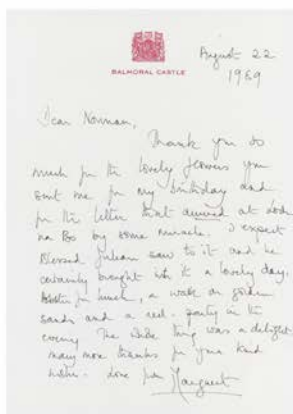 BALMORAL CASTLE
August 22
1989
Dear Norman,
Thank you so
much for the lovely flowers you
sent me for my birthday and
for the letter that arrived at
by some miracle. I expect
Blessed Julian saw to it and he
certainly brought with it a lovely day.
for lunch, a walk on golden
sands and a reel-party in the
evening. The whole thing was a delight
many more thanks for your kind
Love from Margaret